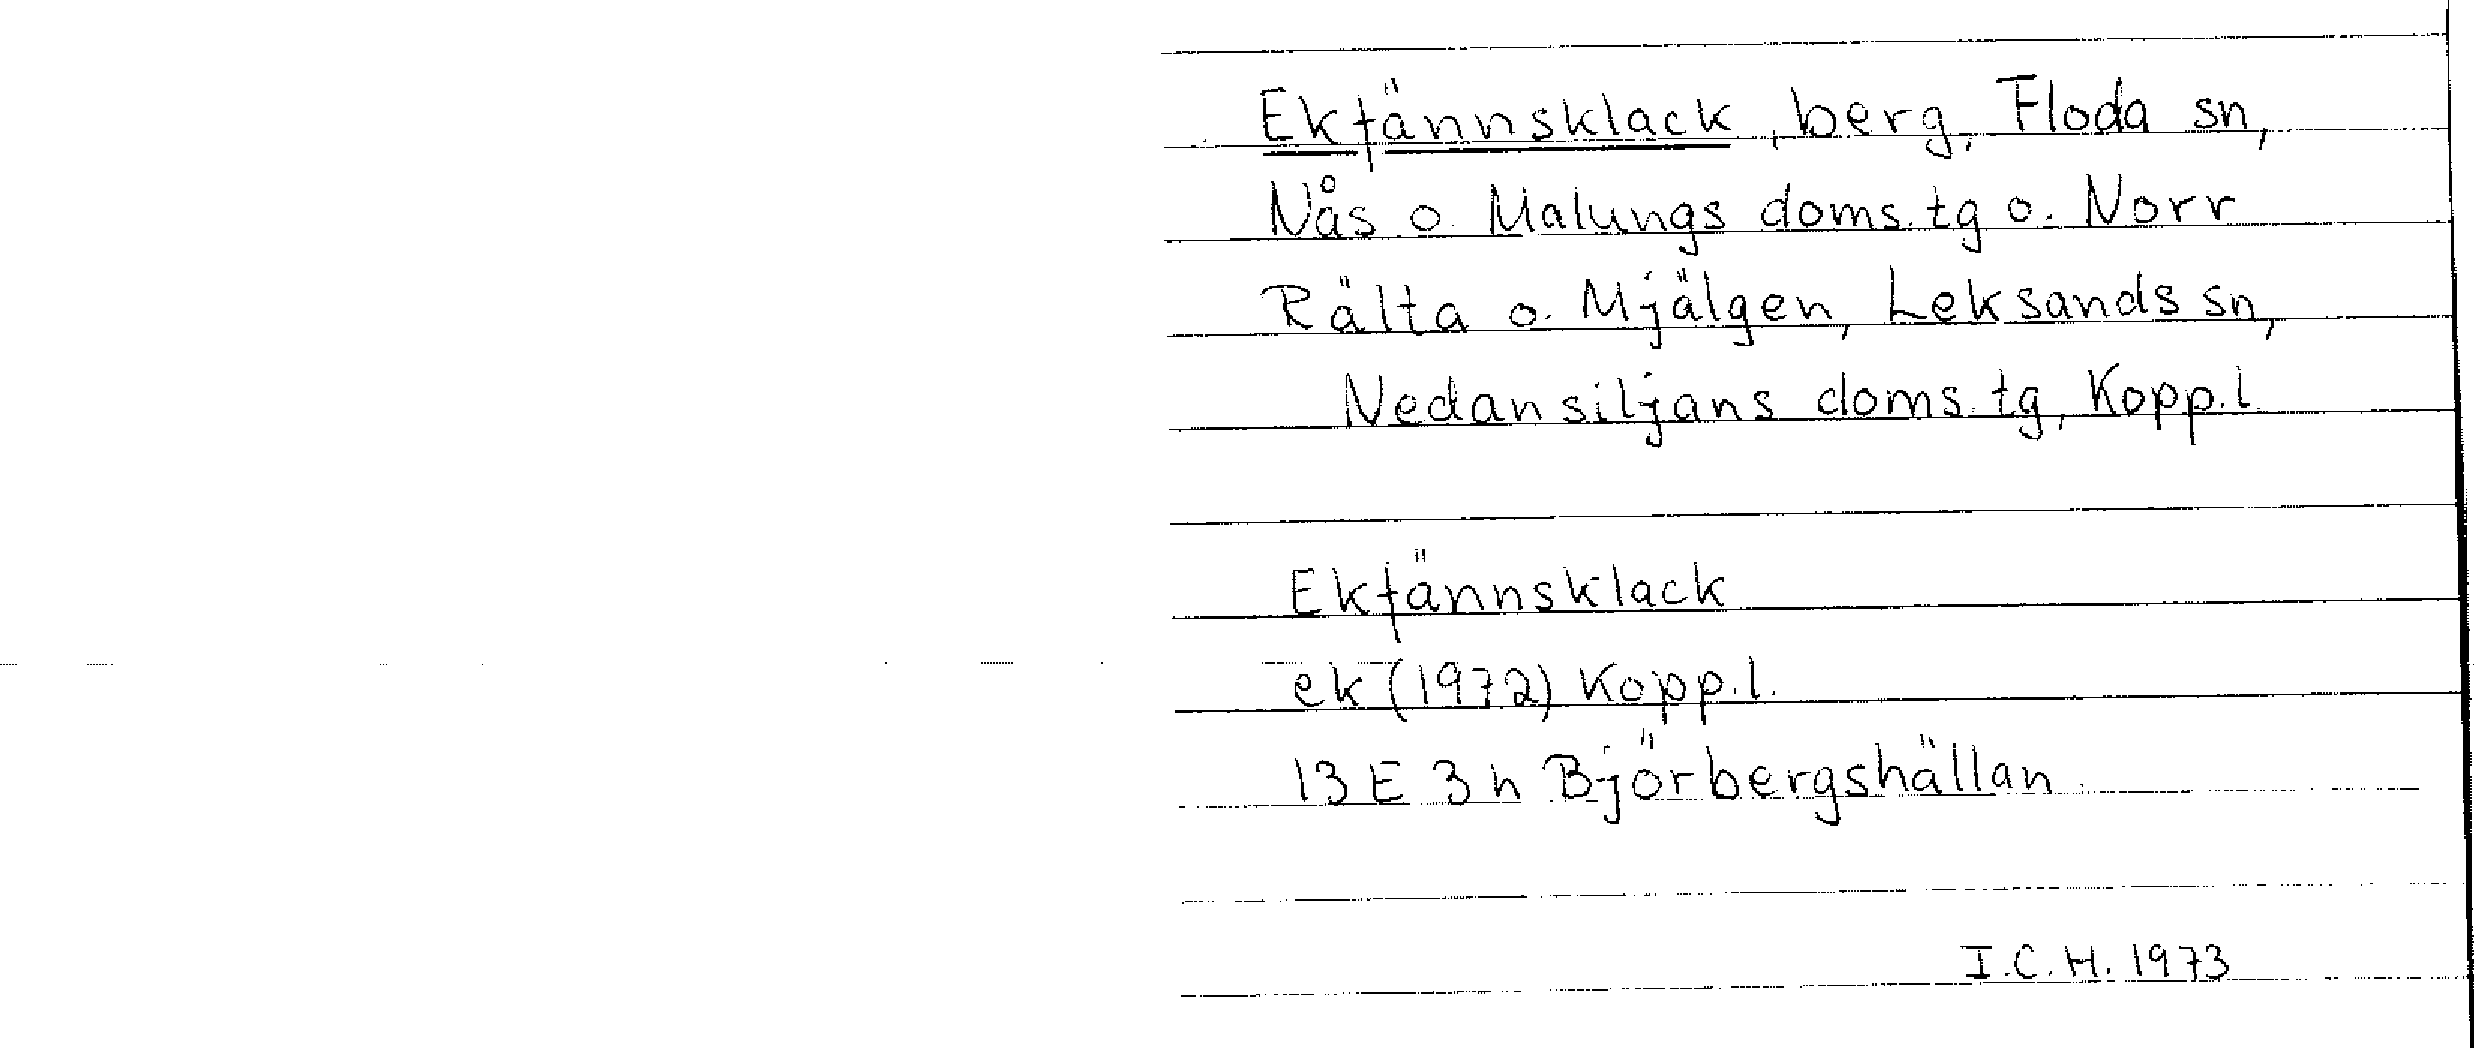 Ekfännsklack, berg, Floda sn,
Nås o. Malungs doms.tg o. Norr
Rälta o. Mjälgen, Leksands sn,
Nedansiljans doms.tg, Kopp.l.
Ekfännsklack
ek (1972) Kopp.l.
13 E 3 h Björbergshällan
I.C.H. 1973